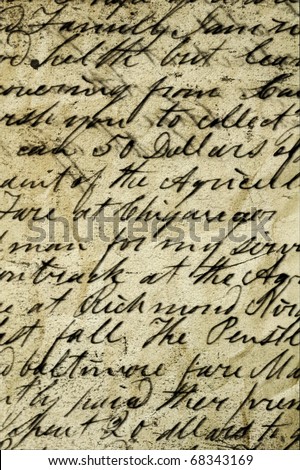 d Family, am in
od helth but lear
concerning from Ca
ish you to collect
can 50 Dollars
aint of the Agricul
Fare at Chigargo
d man for my serv
on track at the Ag
e at Richmond
last fall. The Pensil
d baltimore fare Ma
ntly paid ther prem
spent 20 dollard to
shutterstock
www.shutterstock.com · 68343169